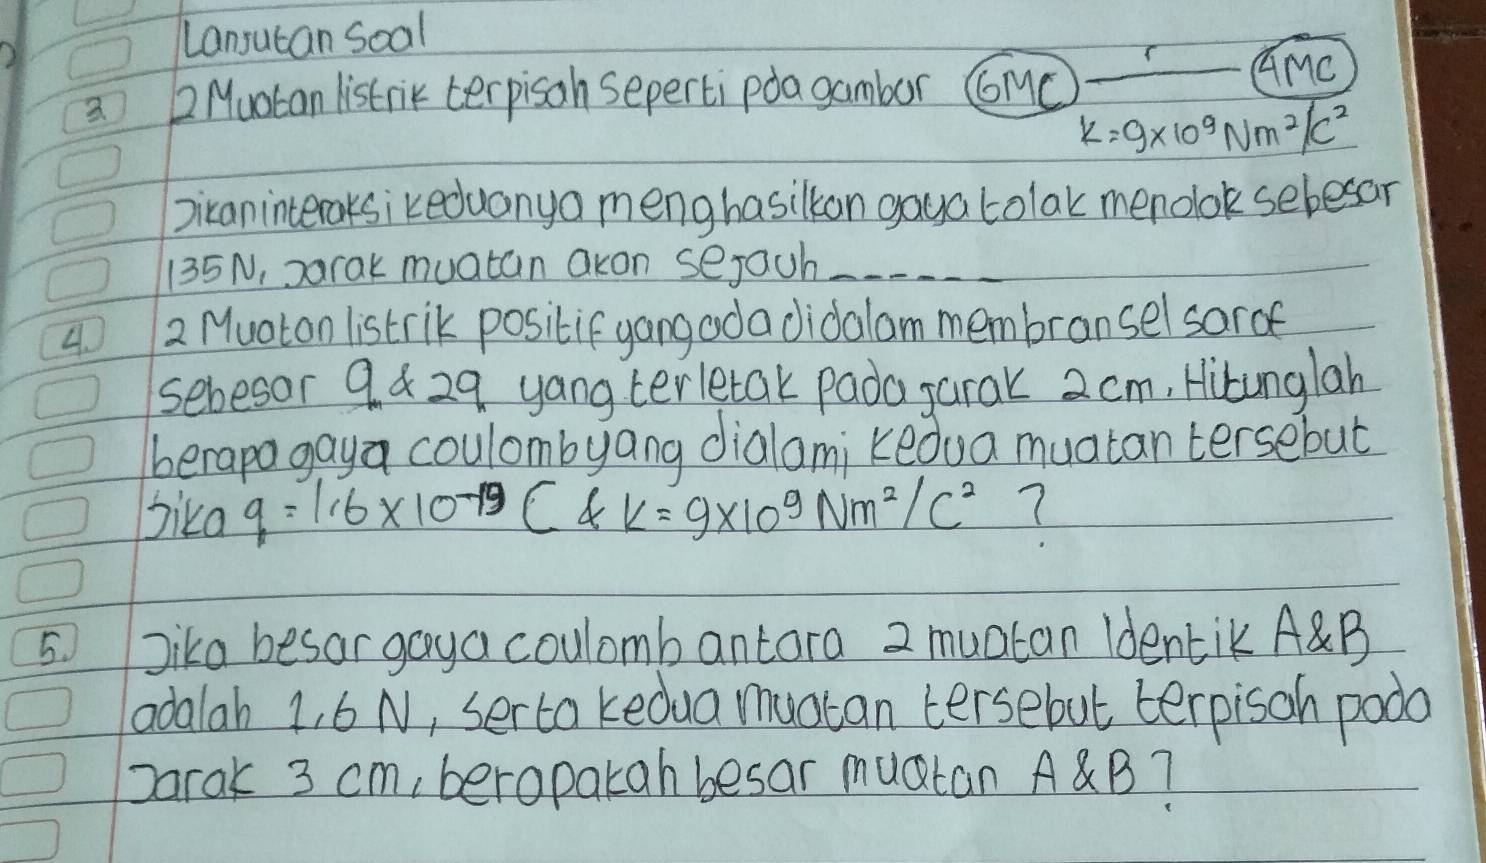 Lanjutan Soal
3 2 Muatan listrik terpisah seperti pda gambar 6MC r 4MC
k=9×10⁹ Nm²/C²
Jikaninteraksi keduanya menghasilkan gaya tolak menolak sebesar
135 N, Jarak muatan akan sejauh ------
4. 2 Muatan listrik positif yang ada didalam membran sel saraf
sebesar q & 2q yang terletak pada jarak 2 cm. Hitunglah
berapa gaya coulomb yang dialami kedua muatan tersebut
Jika q = 1,6 × 10⁻¹⁹ C & k = 9×10⁹ Nm²/C² ?
5. Jika besar gaya coulomb antara 2 muatan Identik A&B
adalah 1,6 N, serta kedua muatan tersebut terpisah pada
Jarak 3 cm, berapakah besar muatan A & B?